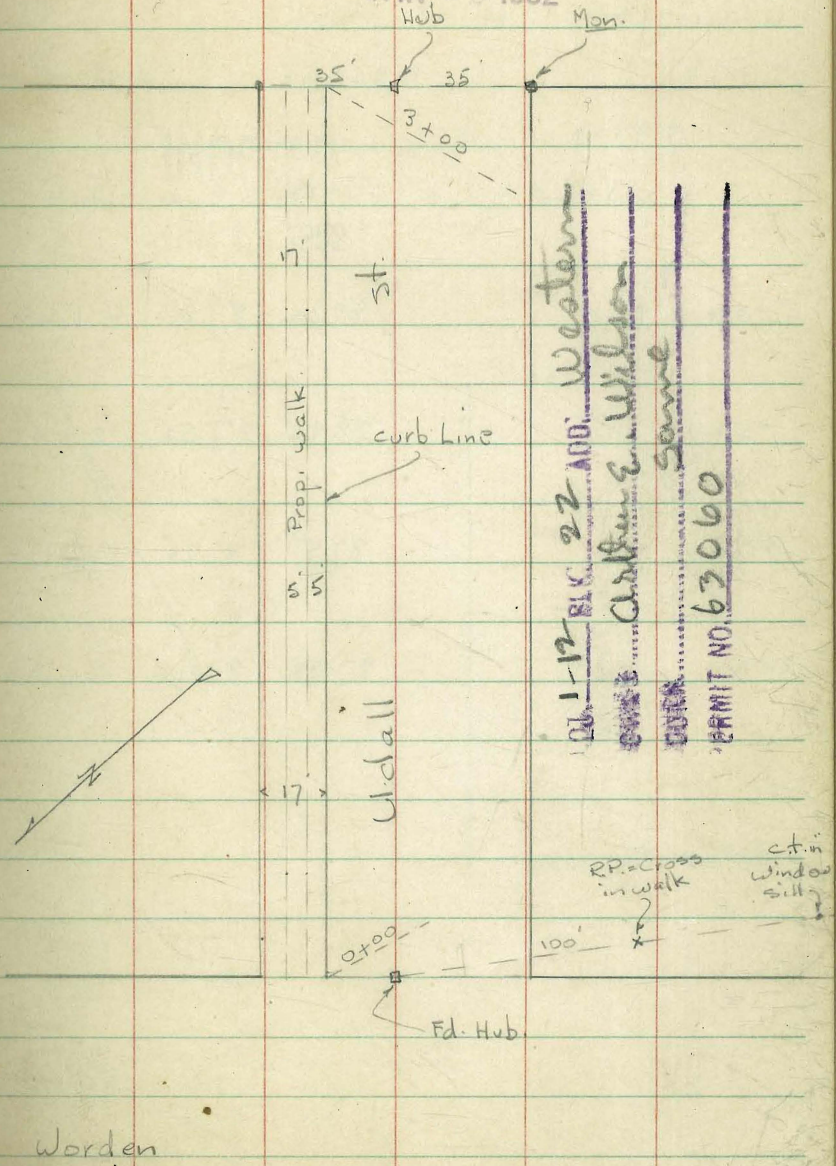 Hub
Mon.
35'
35'
3+00
St.
5.
Prop. walk
5. 5.
Curb Line
Udall
17
LOT 1-12 BLK. 22 ADD. Western
OWNER Arthur E. Wilson
CONTR. Same
PERMIT NO. 63060
N
R.P. = Cross
in walk
c.t. in
Window
Sill
0+00
100'
Fd. Hub.
Worden